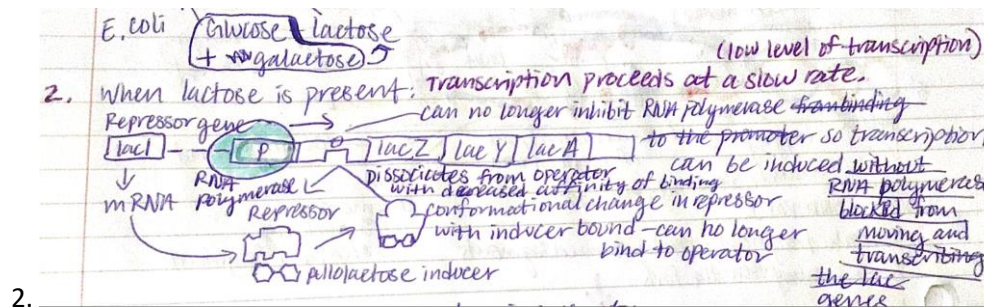 E.coli Glucose lactose
+ galactose
(low level of transcription)
2. When lactose is present: Transcription proceeds at a slow rate.
can no longer inhibit RNA polymerase from binding
Repressor gene
lacI P lacZ lac Y lac A
to the promoter so transcription
can be induced without
RNA polymerase
blocked from
moving and
transcribing
the lac
genes
RNA
polymerase
Dissociates from operator
with decreased affinity of binding
mRNA
Repressor
conformational change in repressor
with inducer bound - can no longer
bind to operator
allolactose inducer
2.